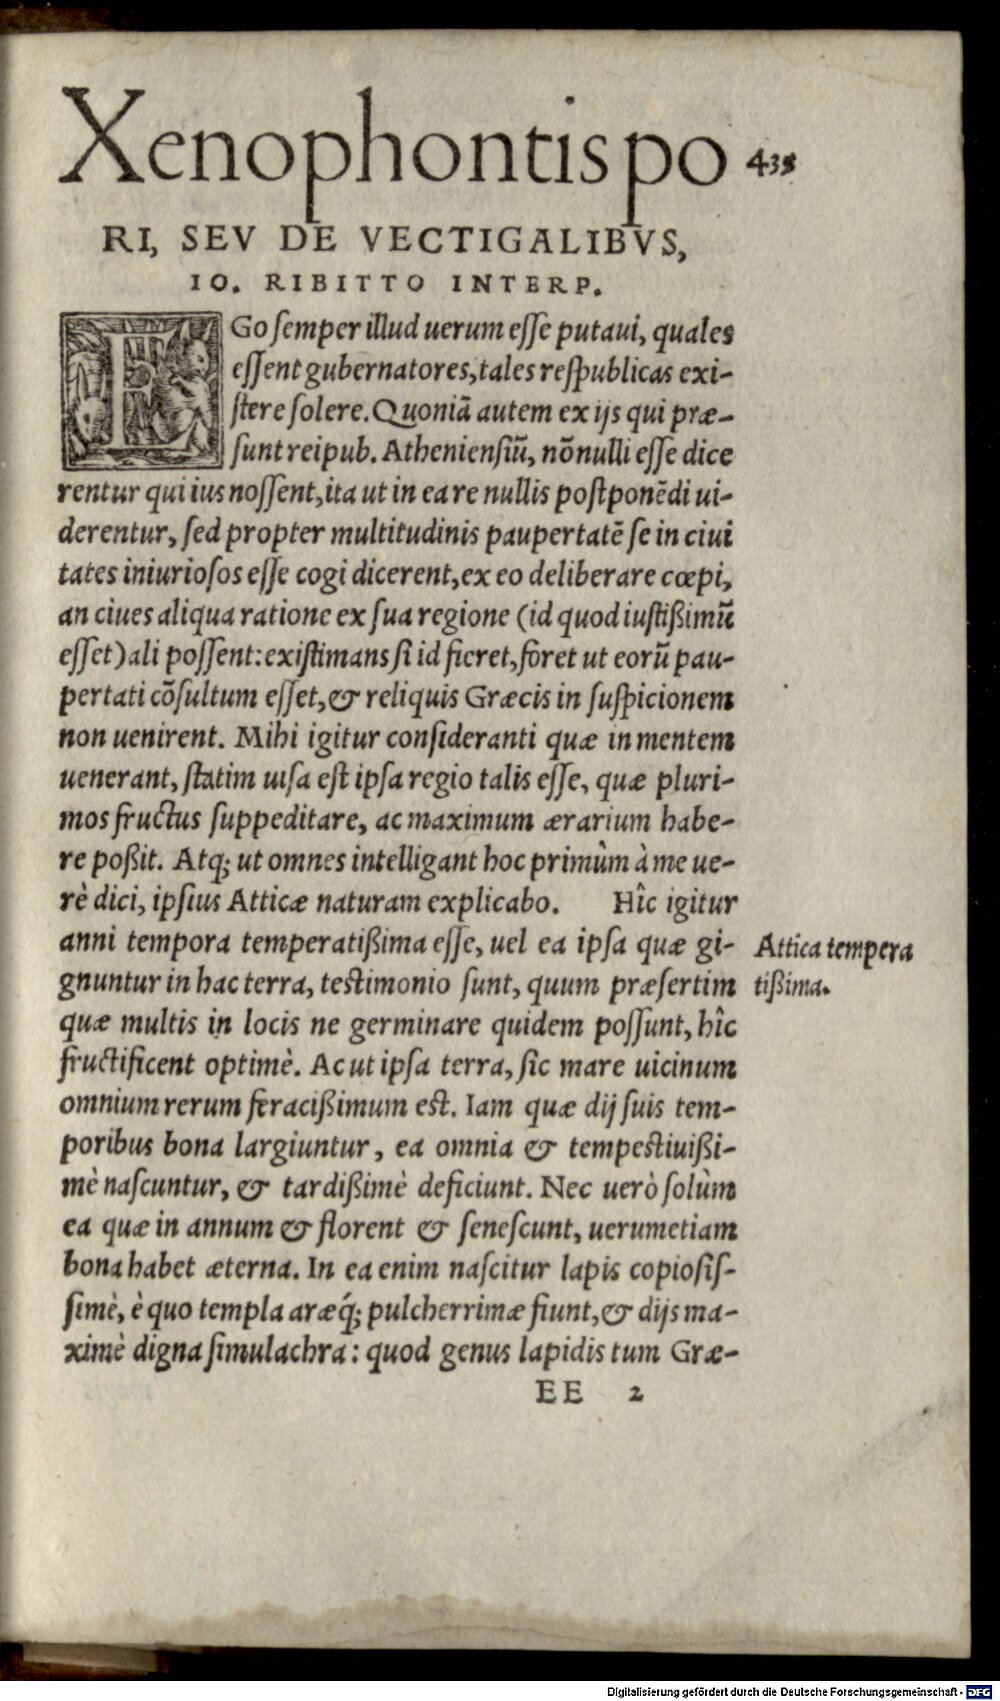 Xenophontis po 435
RI, SEV DE VECTIGALIBVS,
IO. RIBITTO INTERP.
EGo ſemper illud uerum eſſe putaui, quales
eſſent gubernatores, tales reſpublicas exi-
ſtere ſolere. Quoniã autem ex ijs qui præ-
ſunt reipub. Athenienſiũ, nõnulli eſſe dice
rentur qui ius noſſent, ita ut in ea re nullis poſtponẽdi ui-
derentur, ſed propter multitudinis paupertatẽ ſe in ciui
tates iniurioſos eſſe cogi dicerent, ex eo deliberare cœpi,
an ciues aliqua ratione ex ſua regione (id quod iuſtißimũ
eſſet) ali poſſent: exiſtimans ſi id fieret, foret ut eorũ pau-
pertati cõſultum eſſet, & reliquis Græcis in ſuſpicionem
non uenirent. Mihi igitur conſideranti quæ in mentem
uenerant, ſtatim uiſa eſt ipſa regio talis eſſe, quæ pluri-
mos fructus ſuppeditare, ac maximum ærarium habe-
re poßit. Atq; ut omnes intelligant hoc primùm à me ue-
rè dici, ipſius Atticæ naturam explicabo. Hîc igitur
anni tempora temperatißima eſſe, uel ea ipſa quæ gi-
gnuntur in hac terra, teſtimonio ſunt, quum præſertim
quæ multis in locis ne germinare quidem poſſunt, hîc
fructificent optimè. Ac ut ipſa terra, ſic mare uicinum
omnium rerum feracißimum eſt. Iam quæ dij ſuis tem-
poribus bona largiuntur, ea omnia & tempeſtiuißi-
mè naſcuntur, & tardißimè deficiunt. Nec uerò ſolùm
ea quæ in annum & florent & ſeneſcunt, uerumetiam
bona habet æterna. In ea enim naſcitur lapis copioſiſ-
ſimè, è quo templa aræq́; pulcherrimæ fiunt, & dijs ma-
ximè digna ſimulachra: quod genus lapidis tum Græ-
EE 2
Attica tempera
tißima.
Digitalisierung gefördert durch die Deutsche Forschungsgemeinschaft - DFG